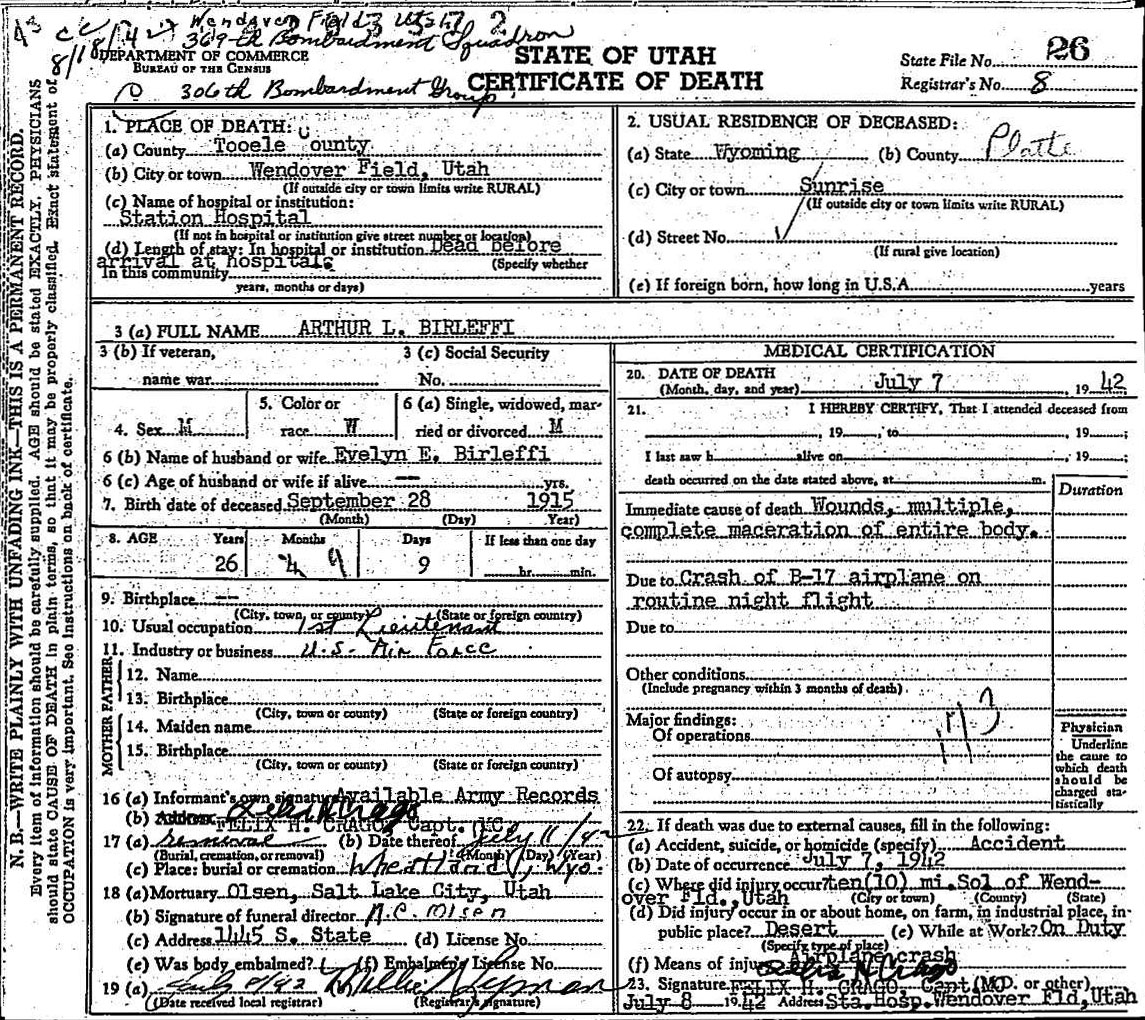 cc Wendover Field, Utah 2
8/18/42 369th Bombardment Squadron
DEPARTMENT OF COMMERCE
BUREAU OF THE CENSUS
306th Bombardment Group
STATE OF UTAH
CERTIFICATE OF DEATH
State File No. 26
Registrar's No. 8
N. B.—WRITE PLAINLY WITH UNFADING INK—THIS IS A PERMANENT RECORD.
Every item of information should be carefully supplied. AGE should be stated EXACTLY. PHYSICIANS
should state CAUSE OF DEATH in plain terms, so that it may be properly classified. Exact statement of
OCCUPATION is very important. See Instructions on back of certificate.
1. PLACE OF DEATH:
(a) County Tooele County
(b) City or town Wendover Field, Utah
(If outside city or town limits write RURAL)
(c) Name of hospital or institution:
Station Hospital
(If not in hospital or institution give street number or location)
(d) Length of stay: In hospital or institution Dead before
arrival at hospital. (Specify whether
In this community
years, months or days)
2. USUAL RESIDENCE OF DECEASED:
(a) State Wyoming (b) County Platte
(c) City or town Sunrise
(If outside city or town limits write RURAL)
(d) Street No.
(If rural give location)
(e) If foreign born, how long in U.S.A. years
3 (a) FULL NAME ARTHUR L. BIRLEFFI
3 (b) If veteran, 3 (c) Social Security
name war No.
4. Sex M 5. Color or race W 6 (a) Single, widowed, mar-
ried or divorced M
6 (b) Name of husband or wife Evelyn E. Birleffi
6 (c) Age of husband or wife if alive -- yrs.
7. Birth date of deceased September 28 1915
(Month) (Day) Year)
8. AGE Years Months Days If less than one day
26 9 9 hr. min.
9. Birthplace --
(City, town, or county) (State or foreign country)
10. Usual occupation 1st Lieutenant
11. Industry or business U.S. Air Force
FATHER
12. Name
13. Birthplace
(City, town or county) (State or foreign country)
MOTHER
14. Maiden name
15. Birthplace
(City, town or county) (State or foreign country)
16 (a) Informant's own signature Available Army Records
Felix H Crago
(b) Address FELIX H. CRAGO, Capt. MC
17 (a) removal (b) Date thereof July 11/42
(Burial, cremation, or removal) (Month) (Day) (Year)
(c) Place: burial or cremation Wheatland, Wyo.
18 (a) Mortuary Olsen, Salt Lake City, Utah
(b) Signature of funeral director A.C. Olsen
(c) Address 1445 S. State (d) License No.
(e) Was body embalmed? (f) Embalmer's License No.
19 (a) July 8/42
(Date received local registrar) (Registrar's signature)
MEDICAL CERTIFICATION
20. DATE OF DEATH
(Month, day, and year) July 7 19 42
21. I HEREBY CERTIFY, That I attended deceased from
, 19 , to , 19 ;
I last saw h alive on , 19 ;
death occurred on the date stated above, at m.
Duration
Immediate cause of death Wounds, multiple,
complete maceration of entire body.
Due to Crash of B-17 airplane on
routine night flight
Due to
Other conditions
(Include pregnancy within 3 months of death)
Major findings:
Of operations
173
Of autopsy
Physician
Underline
the cause to
which death
should be
charged sta-
tistically
22. If death was due to external causes, fill in the following:
(a) Accident, suicide, or homicide (specify) Accident
(b) Date of occurrence July 7, 1942
(c) Where did injury occur? ten(10) mi. So1 of Wend-
over Fld., Utah (City or town) (County) (State)
(d) Did injury occur in or about home, on farm, in industrial place, in-
public place? Desert (e) While at Work? On Duty
(Specify type of place)
(f) Means of injury Airplane crash
Felix H Crago
23. Signature FELIX H. CRAGO, Capt. (M.D. or other)
July 8 19 42 Address Sta. Hosp. Wendover Fld, Utah